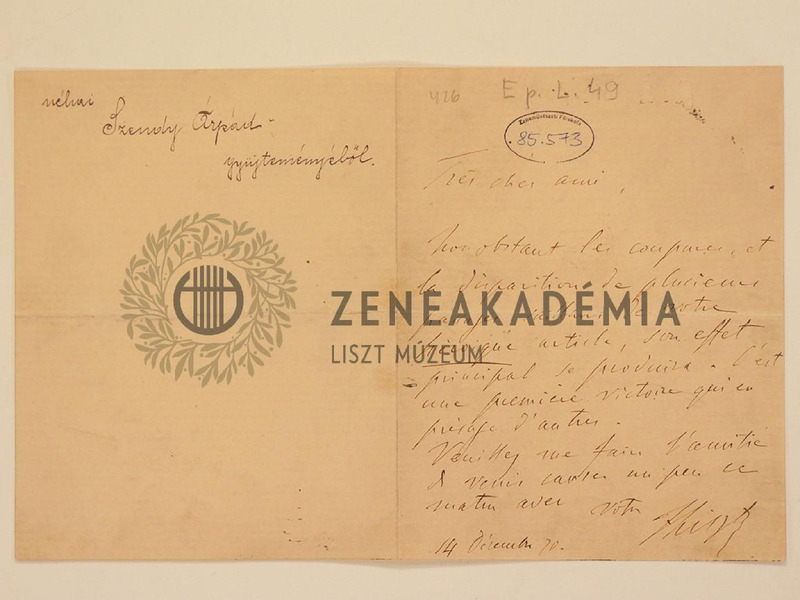 néhai
Szendy Árpád
gyüjteményéből.
426
Ep. L. 49
Zeneművészeti Főiskola
85.573
Très cher ami,
Nonobstant les coupures, et
la disparition de plusieurs
passages saillants de votre
article, son effet
principal se produira. C'est
une première victoire qui en
présage d'autres.
Veuillez me faire l'amitié
de venir causer un peu ce
matin avec votre
FLiszt
14 Décembre 70.
ZENEAKADÉMIA
LISZT MÚZEUM